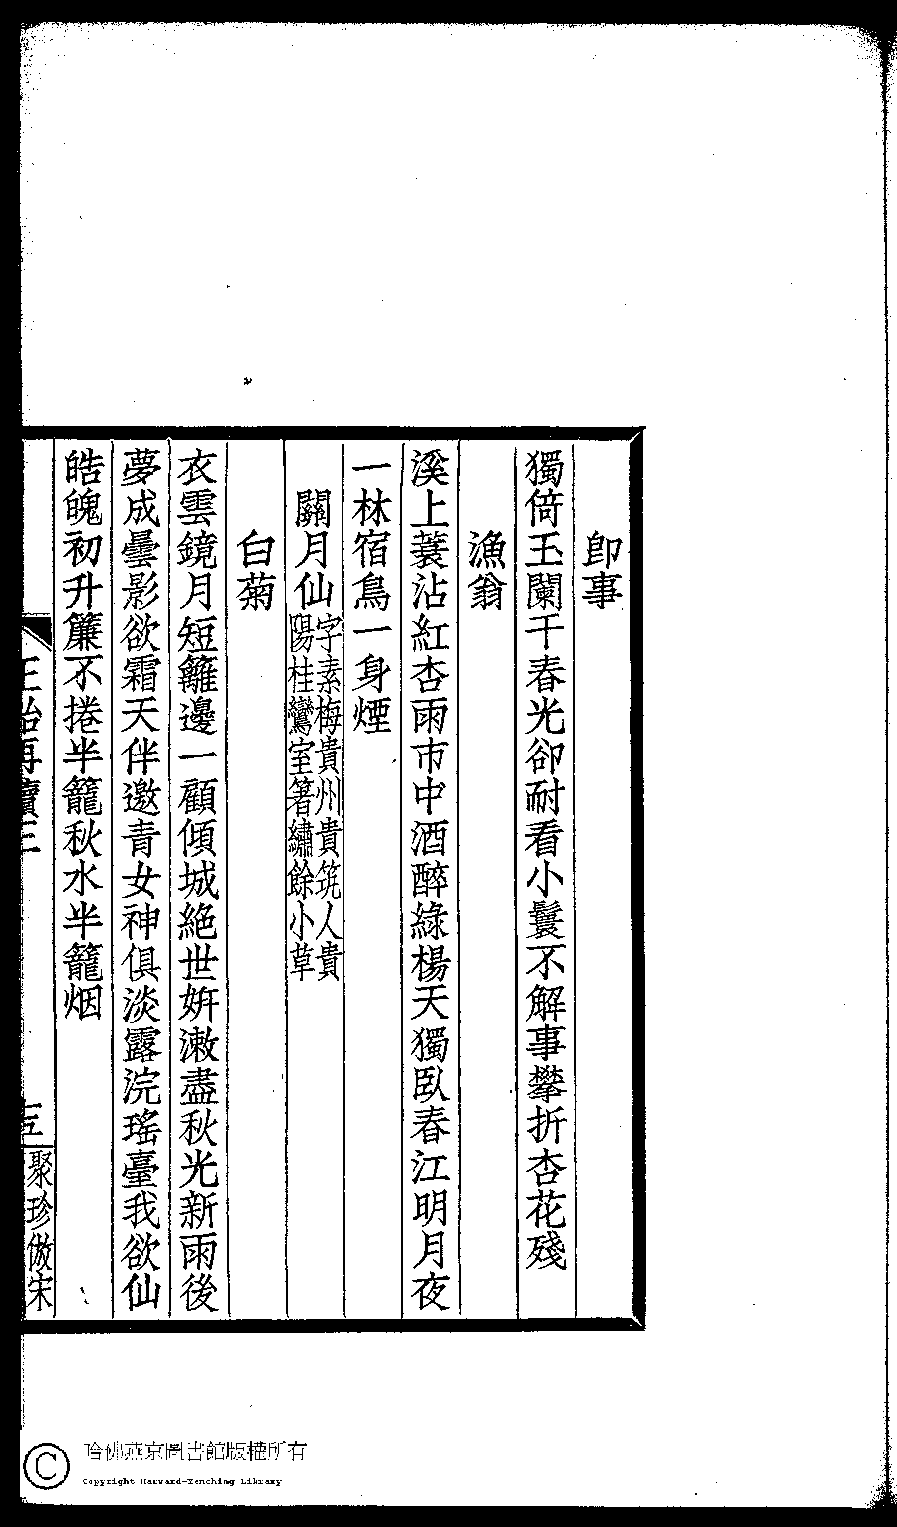 即事
獨倚玉闌干春光卻耐看小鬟不解事攀折杏花殘
漁翁
溪上蓑沾紅杏雨市中酒醉綠楊天獨臥春江明月夜
一林宿鳥一身煙
關月仙字素梅貴州貴筑人貴陽桂鸞室箸繡餘小草
白菊
衣雲鏡月短籬邊一顧傾城絕世妍漱盡秋光新雨後
夢成曇影欲霜天伴邀青女神俱淡露浣瑤臺我欲仙
皓魄初升簾不捲半籠秋水半籠烟
聚珍倣宋
哈佛燕京圖書館版權所有
Copyright Harvard-Yenching Library